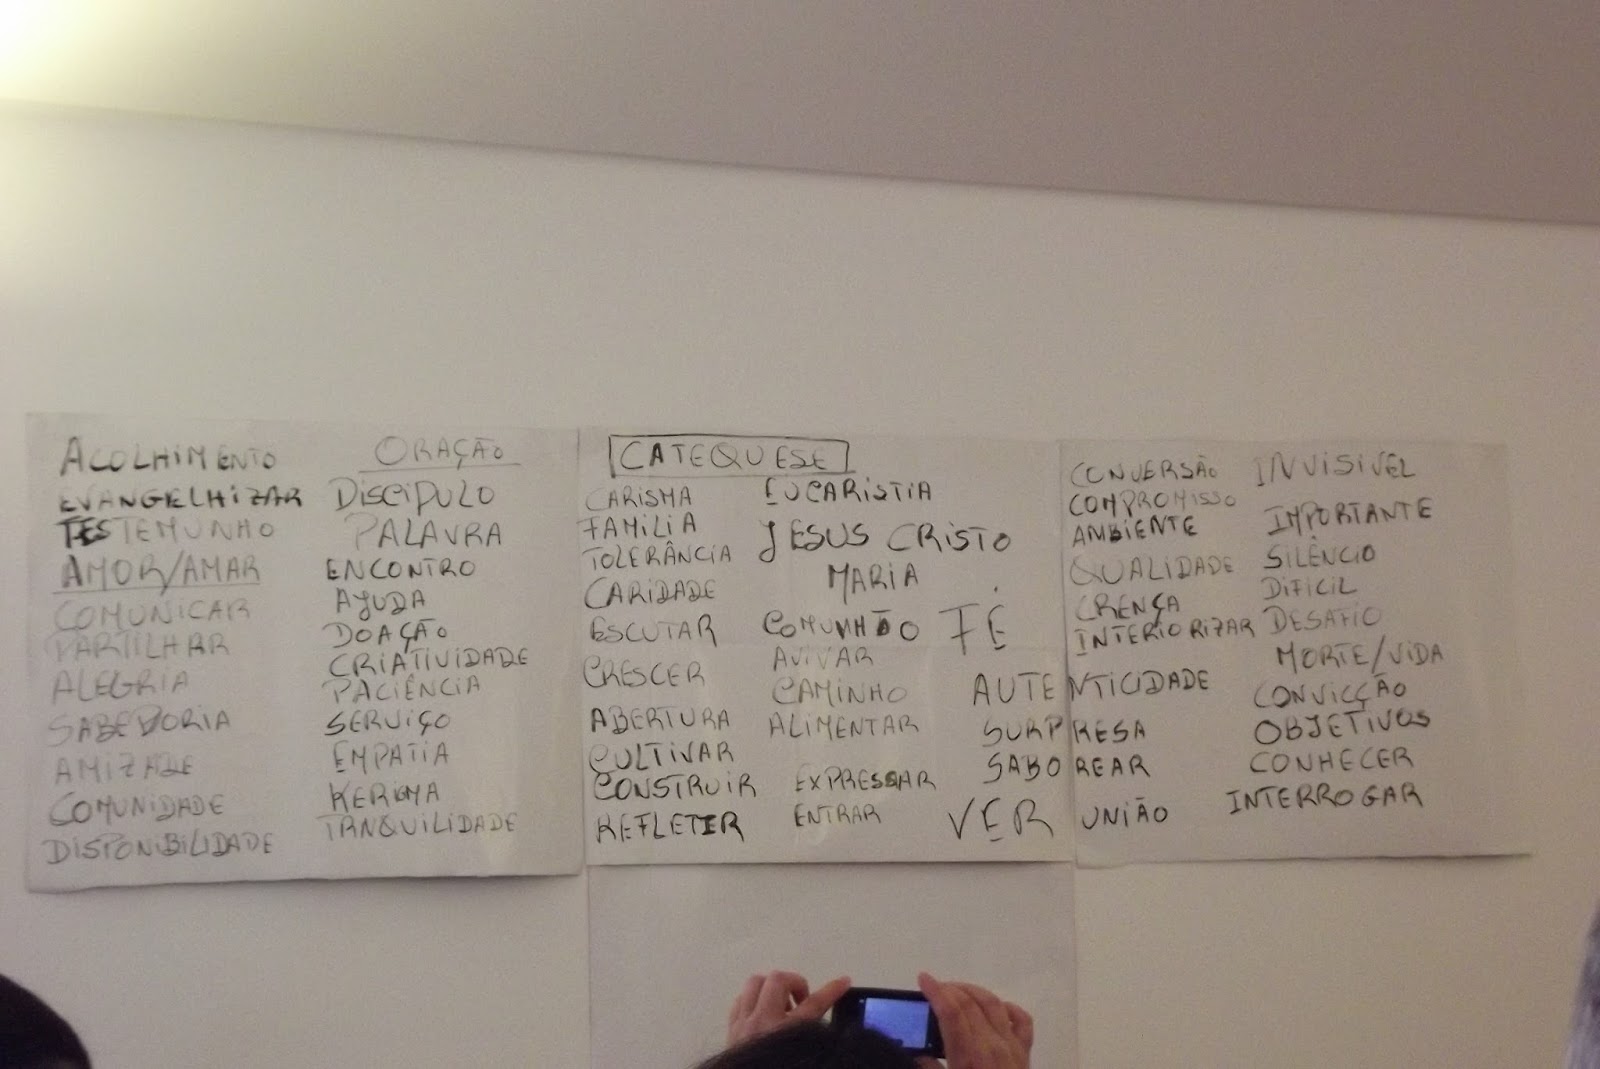 ACOLHIMENTO
EVANGELHIZAR
TESTEMUNHO
AMOR/AMAR
COMUNICAR
PARTILHAR
ALEGRIA
SABEDORIA
AMIZADE
COMUNIDADE
DISPONIBILIDADE
ORAÇÃO
DISCIPULO
PALAVRA
ENCONTRO
AJUDA
DOAÇÃO
CRIATIVIDADE
PACIÊNCIA
SERVIÇO
EMPATIA
KERIGMA
TRNQUILIDADE
CATEQUESE
CARISMA
FAMILIA
TOLERÂNCIA
CARIDADE
ESCUTAR
CRESCER
ABERTURA
CULTIVAR
CONSTRUIR
REFLETIR
EUCARISTIA
JESUS CRISTO
MARIA
COMUNHÃO
FÉ
AVIVAR
CAMINHO
ALIMENTAR
EXPRESSAR
ENTRAR
AUTENTICIDADE
SURPRESA
SABOREAR
VER
CONVERSÃO
COMPROMISSO
AMBIENTE
QUALIDADE
CRENÇA
INTERIORIZAR
UNIÃO
INVISIVEL
IMPORTANTE
SILÊNCIO
DIFICIL
DESAFIO
MORTE/VIDA
CONVICÇÃO
OBJETIVOS
CONHECER
INTERROGAR